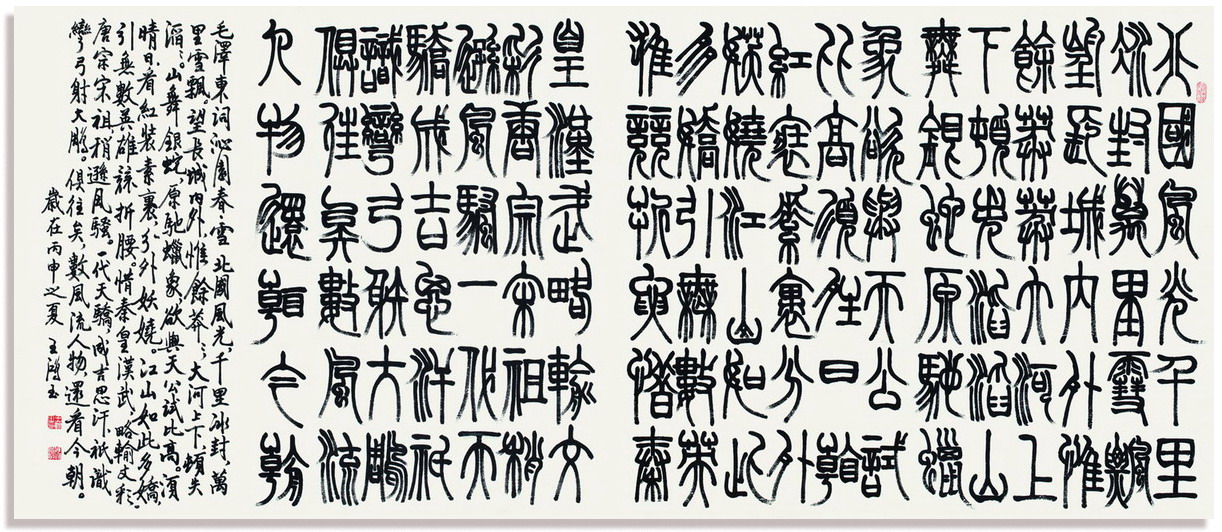 北國風光千里
冰封萬里雪飄
望長城內外惟
餘莽莽大河上
下頓失滔滔山
舞銀蛇原馳蠟
象欲與天公試
比高須晴日看
紅裝素裹分外
妖嬈江山如此
多嬌引無數英
雄競折腰惜秦
皇漢武略輸文
彩唐宗宋祖稍
遜風騷一代天
驕成吉思汗祇
識彎弓射大鵰
俱往矣數風流
人物還看今朝
毛澤東詞沁園春雪 北國風光千里冰封萬
里雪飄。望長城內外惟餘莽〻大河上下頓失
滔〻。山舞銀蛇,原馳蠟象,欲與天公試比高。須
晴日看紅裝素裹,分外妖嬈 江山如此多嬌,
引無數英雄競折腰。惜秦皇漢武,略輸文彩,
唐宗宋祖稍遜風騷。一代天驕成吉思汗祇識
彎弓射大鵰。俱往矣,數風流人物還看今朝。
歲在丙申之夏 王